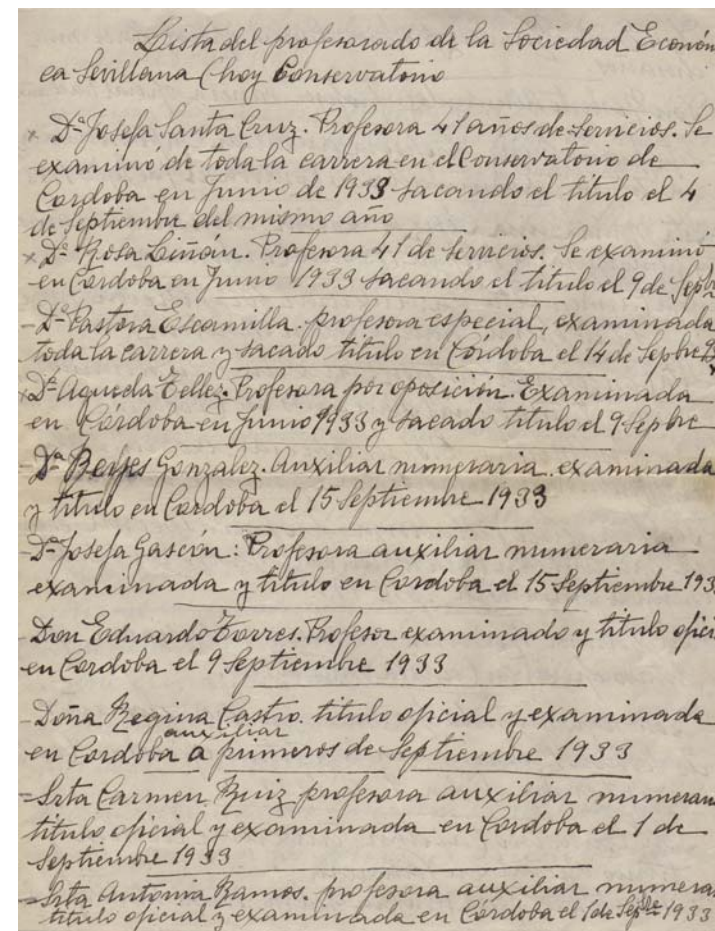 Lista del profesorado de la Sociedad Económ
ca Sevillana (hoy Conservatorio
x D.ª Josefa Santa Cruz. Profesora 41 años de servicios. Se
examinó de toda la carrera en el Conservatorio de
Cordoba en Junio de 1933 sacando el título el 4
de Septiembre del mismo año
x D.ª Rosa Liñán. Profesora 41 de servicios. Se examinó
en Cordoba en Junio 1933 sacando el titulo el 9 de Sepbre
- D.ª Pastora Escamilla. profesora especial, examinada
toda la carrera y sacado título en Córdoba el 14 de Sepbre
x D.ª Agueda Tellez. Profesora por oposición. Examinada
en Córdoba en Junio 1933 y sacado título el 9 Sepbre
- D.ª Reyes Gonzalez. Auxiliar numeraria. examinada
y título en Cordoba el 15 Septiembre 1933
- D.ª Josefa Gascón: Profesora auxiliar numeraria
examinada y título en Cordoba el 15 Septiembre 193
- Don Eduardo Torres. Profesor examinado y título ofici
en Cordoba el 9 Septiembre 1933
- Doña Regina Castro. titulo oficial y examinada
auxiliar
en Cordoba a primeros de Septiembre 1933
= Srta Carmen Ruiz profesora auxiliar numerar
título oficial y examinada en Cordoba el 1 de
Septiembre 1933
= Srta Antonia Ramos. profesora auxiliar numerar
título oficial y examinada en Córdoba el 1 de Sepbre 1933